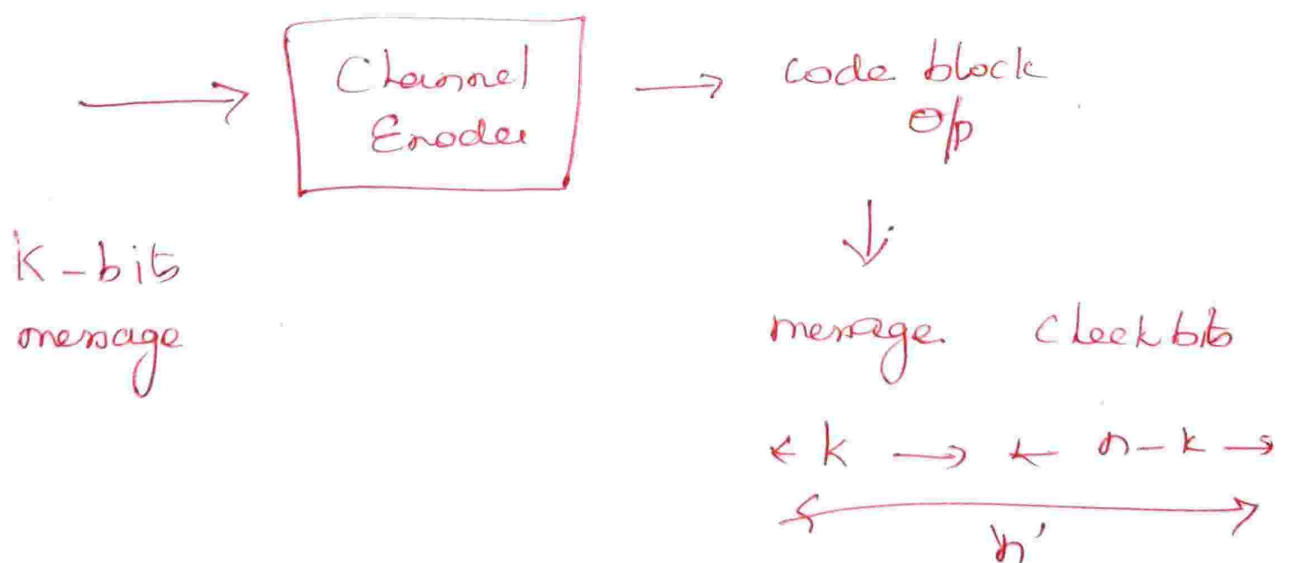 Channel
Enoder
code block
O/p
K-bits
message
message. Check bits
k n-k
'n'